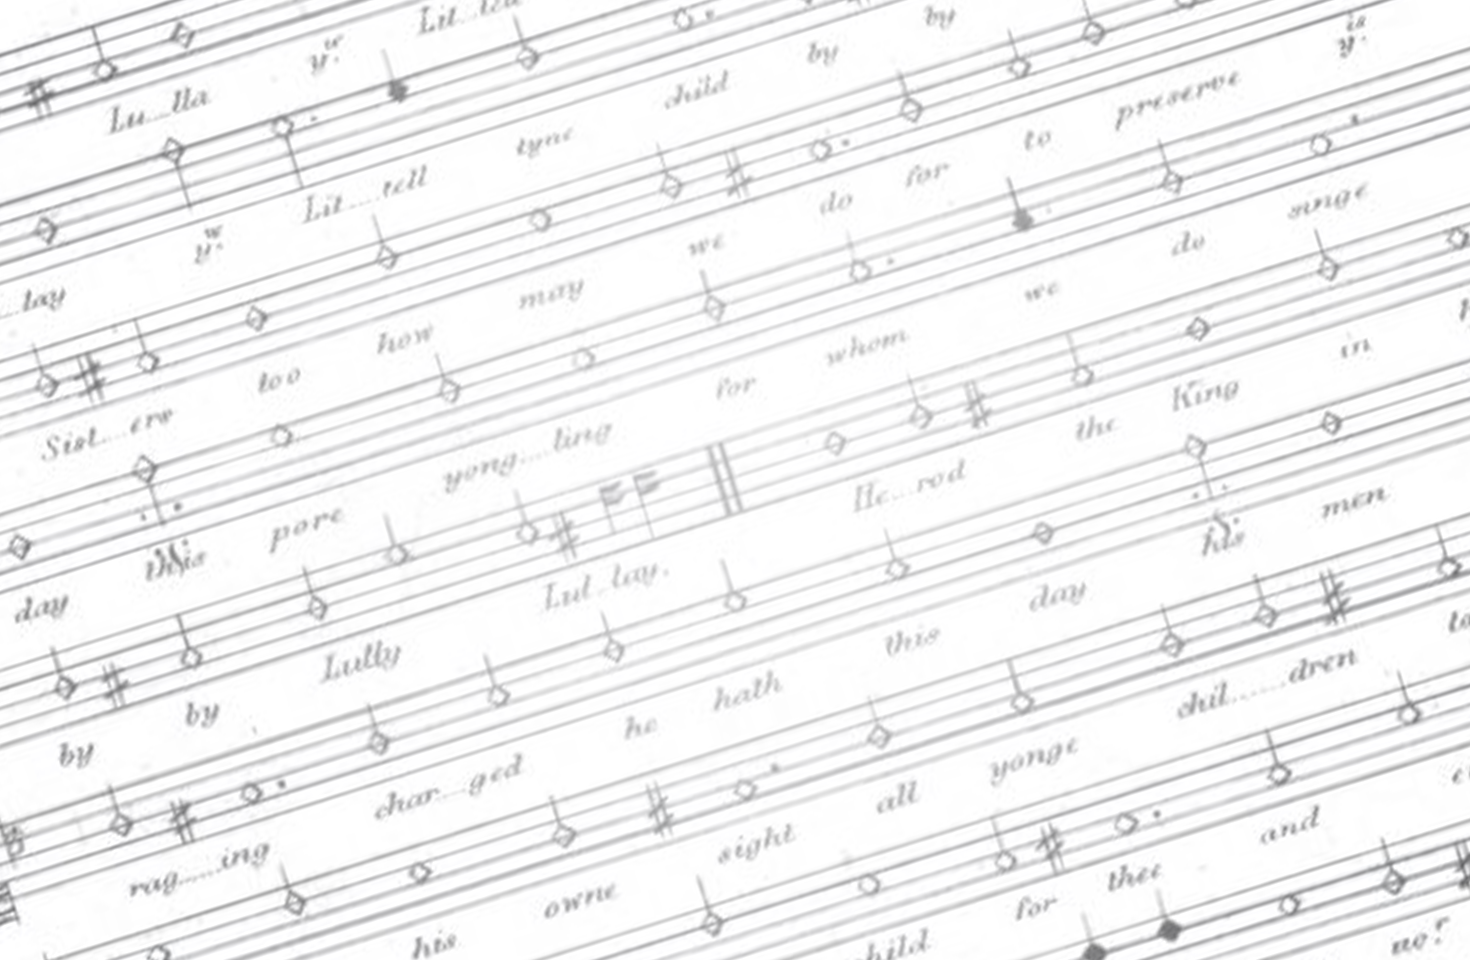 Lu...lla y.w Lit...tell
...lay y.w Lit....tell tyne child by by
Sist....ers too how may we do for to preserve y.is
day this pore yong....ling for whom we do singe
by by Lully Lul..lay. He...rod the King in
rag.....ing char...ged he hath this day his men
his owne sight all yonge chil......dren to
child for thee and